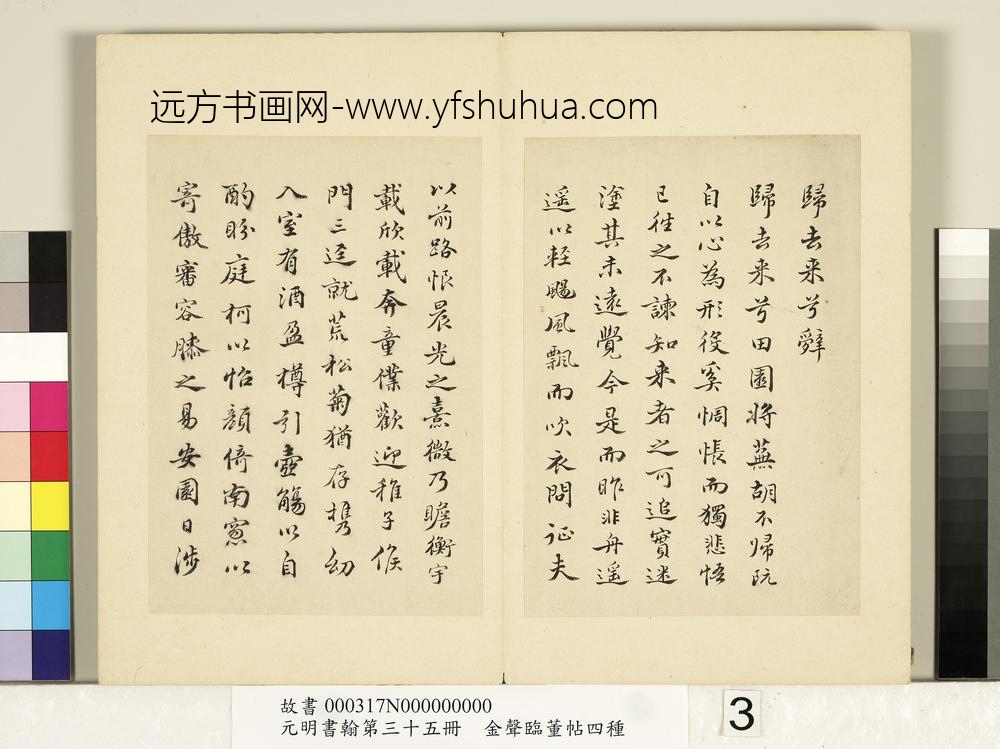 远方书画网-www.yfshuhua.com
歸去来兮辭
歸去来兮田園將蕪胡不帰既
自以心為形役奚惆悵而獨悲悟
已往之不諫知来者之可追實迷
塗其未遠覺今是而昨非舟遥
遥以輊颺風飄而吹衣問征夫
以前路恨晨光之熹微乃瞻衡宇
載欣載奔童僕歡迎稚子候
門三逕就荒松菊猶存携幼
入室有酒盈樽引壺觴以自
酌眄庭柯以怡顔倚南窓以
寄傲審容膝之易安園日涉
故書 000317N000000000
元明書翰第三十五冊 金聲臨董帖四種
3